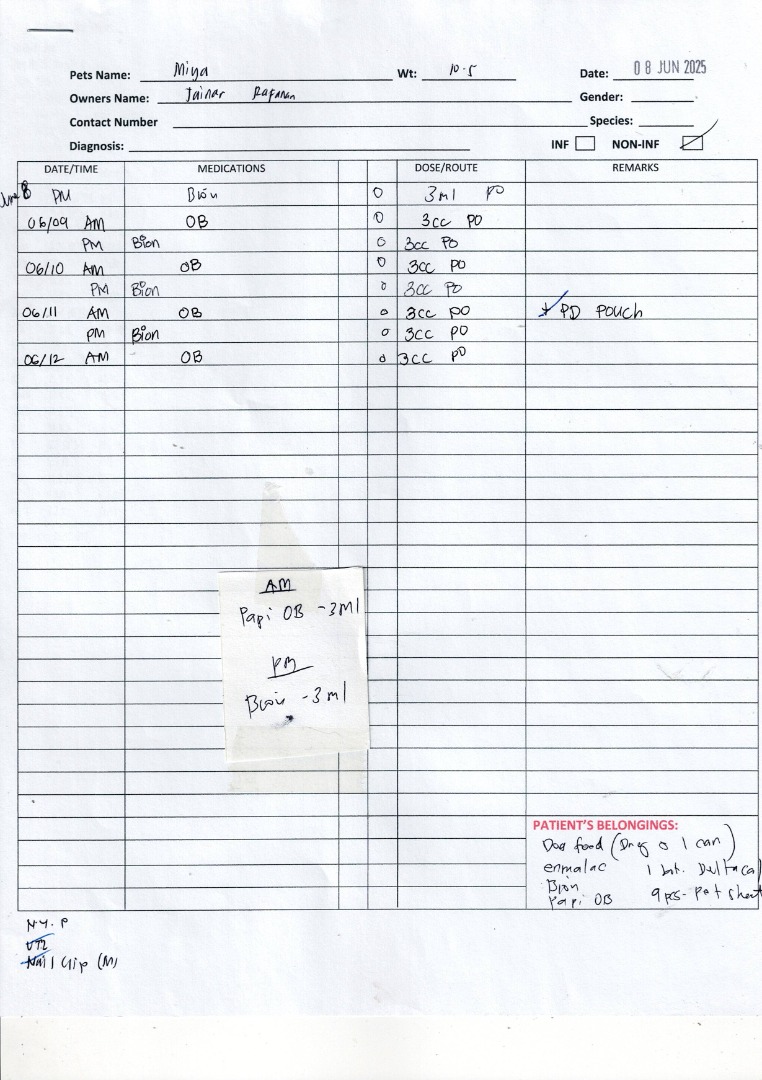 Pets Name: Miya Wt: 10.5 Date: 08 JUN 2025
Owners Name: Jainar Rafanan Gender:
Contact Number Species:
Diagnosis: INF NON-INF
DATE/TIME MEDICATIONS DOSE/ROUTE REMARKS
June 8 PM Bion 3ml PO
06/09 AM OB 3cc PO
PM Bion 3cc PO
06/10 AM OB 3cc PO
PM Bion 3cc PO
06/11 AM OB 3cc PO + PD POUCH
PM Bion 3cc PO
06/12 AM OB 3cc PO
AM
Papi OB -3ml
PM
Bion -3ml
PATIENT'S BELONGINGS:
Dog food (Dry & 1 can)
enmalac 1 bot. Deltacal
Bion
Papi OB 9pcs- Pet sheet
Nail Clip (M)